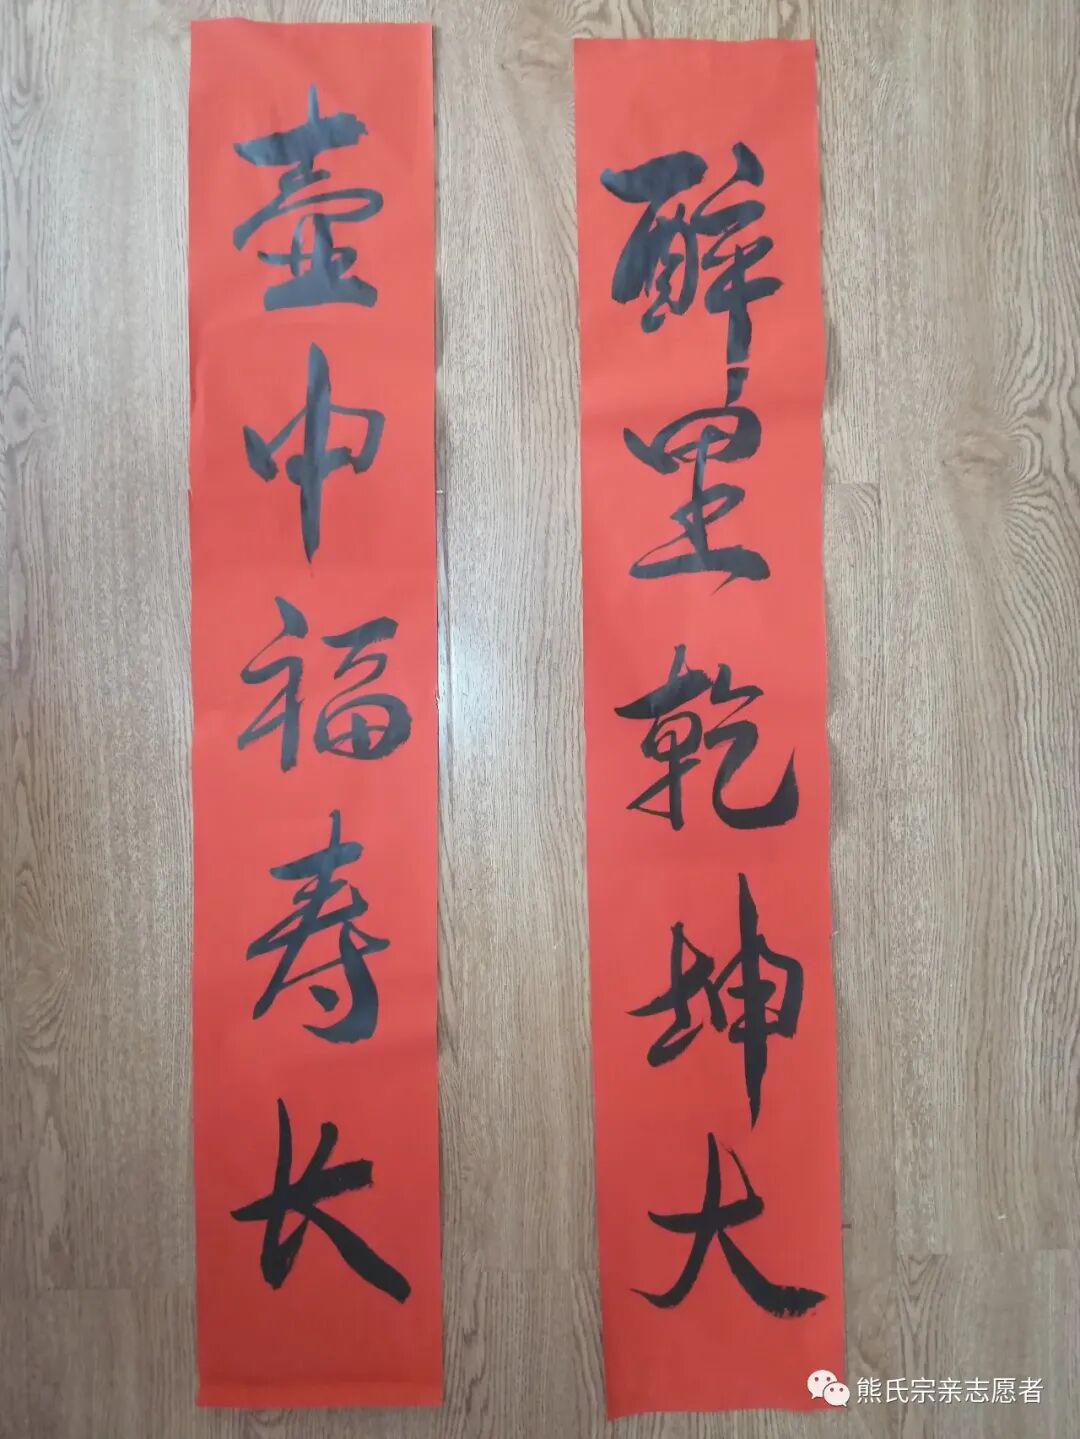 醉里乾坤大
壶中福寿长
熊氏宗亲志愿者